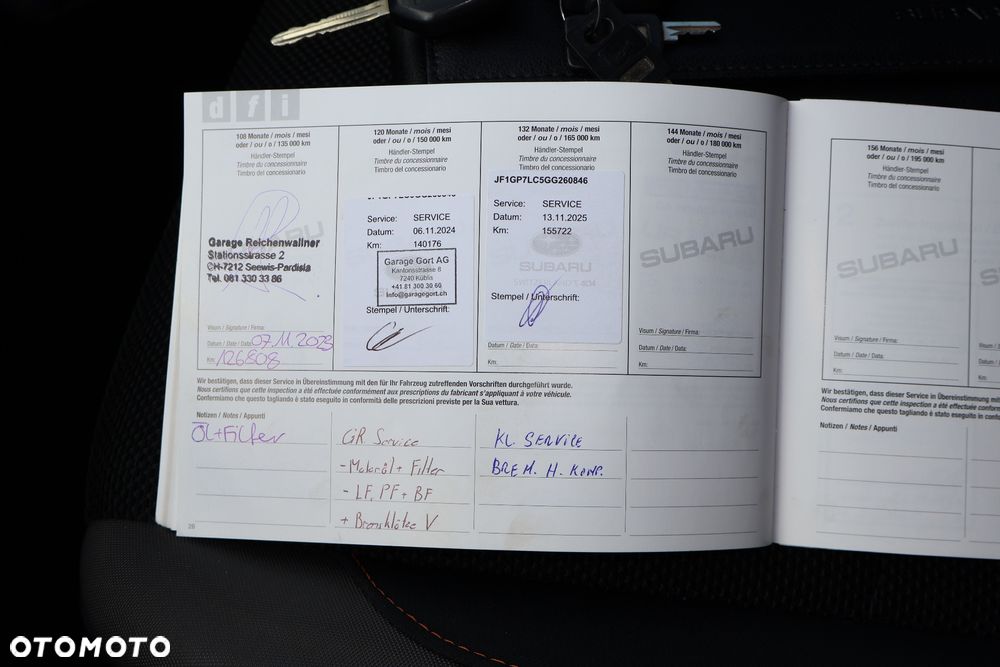 dfi
108 Monate / mois / mesi
oder / ou / o / 135 000 km
Händler-Stempel
Timbre du concessionnaire
Timbro del concessionario
SUBARU
Garage Reichenwallner
Stationsstrasse 2
CH-7212 Seewis-Pardisla
Tel. 081 330 33 86
Visum / Signature / Firma:
Datum / Date / Data: 07.11.2023
Km: 126808
120 Monate / mois / mesi
oder / ou / o / 150 000 km
Händler-Stempel
Timbre du concessionnaire
Timbro del concessionario
Service: SERVICE
Datum: 06.11.2024
Km: 140176
Garage Gort AG
Kantonsstrasse 8
7240 Küblis
+41 81 300 30 60
info@garagegort.ch
Stempel / Unterschrift:
132 Monate / mois / mesi
oder / ou / o / 165 000 km
Händler-Stempel
Timbre du concessionnaire
Timbro del concessionario
JF1GP7LC5GG260846
Service: SERVICE
Datum: 13.11.2025
Km: 155722
SUBARU
Stempel / Unterschrift:
Datum / Date / Data:
Km:
144 Monate / mois / mesi
oder / ou / o / 180 000 km
Händler-Stempel
Timbre du concessionnaire
Timbro del concessionario
SUBARU
Visum / Signature / Firma:
Datum / Date / Data:
Km:
Wir bestätigen, dass dieser Service in Übereinstimmung mit den für Ihr Fahrzeug zutreffenden Vorschriften durchgeführt wurde.
Nous certifions que cette inspection a été effectuée conformément aux prescriptions du fabricant s'appliquant à votre véhicule.
Confermiamo che questo tagliando è stato eseguito in conformità delle prescrizioni previste per la Sua vettura.
Notizen / Notes / Appunti
Öl+Filter
GR. Service
- Motoröl + Filter
- LF, PF + BF
+ Bremsklötze V
KL. SERVICE
BREM. H. KONP.
28
156 Monate / mois / mesi
oder / ou / o / 195 000 km
Händler-Stempel
Timbre du concessionnaire
Timbro del concessionario
SUBARU
Visum / Signature / Firma:
Datum / Date / Data:
Km:
Wir bestätigen, dass dieser Service in Übereinstimmung
Nous certifions que cette inspection a été effectuée
Confermiamo che questo tagliando è stato eseguito
Notizen / Notes / Appunti
OTOMOTO